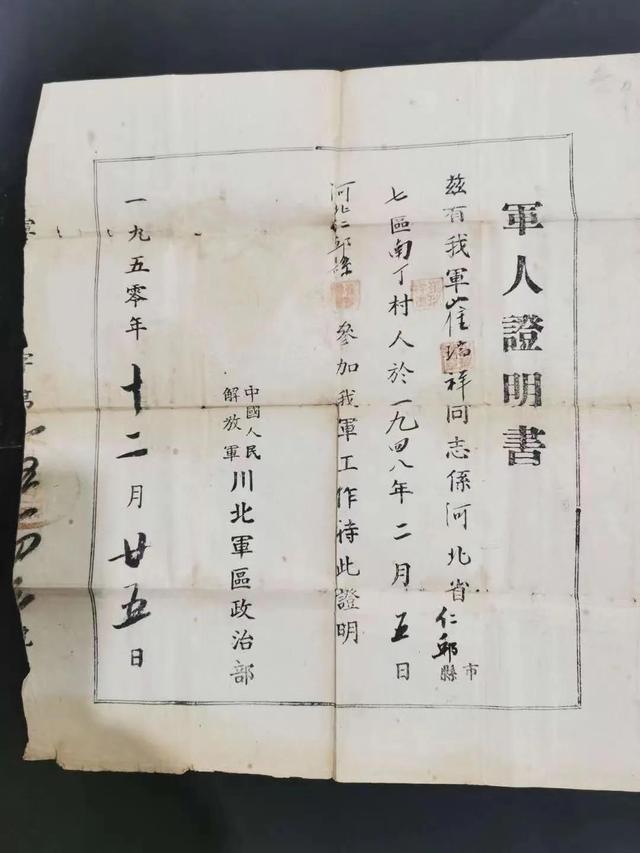 軍人證明書
茲有我軍崔瑞祥同志係河北省仁邱市縣
七區南丁村人於一九四八年二月五日
河北仁邱縣參加我軍工作待此證明
中國人民解放軍川北軍區政治部
一九五零年十二月廿五日
字第一五一四